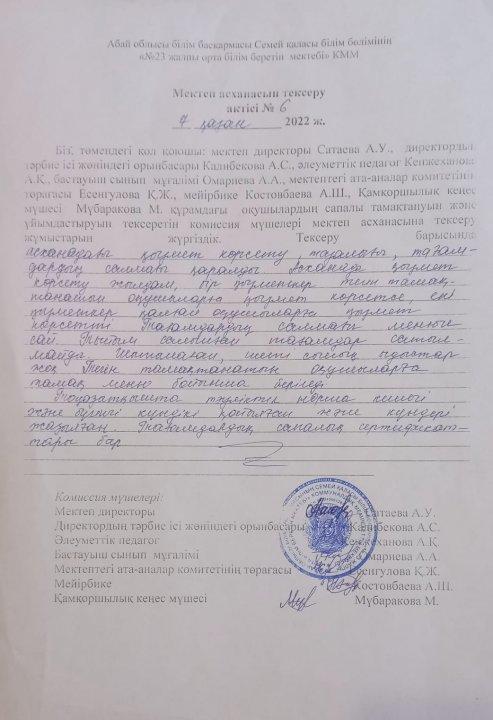 Абай облысы білім басқармасы Семей қаласы білім бөлімінің
«№23 жалпы орта білім беретін мектебі» КММ
Мектеп асханасын тексеру
актісі № 6
7 қазан 2022 ж.
Біз, төмендегі қол қоюшы: мектеп директоры Сатаева А.У., директордың
тәрбие ісі жөніндегі орынбасары Калибекова А.С., әлеуметтік педагог Кенжеханова
А.Қ., бастауыш сынып мұғалімі Омариева А.А., мектептегі ата-аналар комитетінің
төрағасы Есенгулова Қ.Ж., мейірбике Костовбаева А.Ш., Қамқоршылық кеңес
мүшесі Мұбаракова М. құрамдағы оқушылардың сапалы тамақтануын және
ұйымдастыруын тексеретін комиссия мүшелері мектеп асханасына тексеру
жұмыстарын жүргіздік. Тексеру барысында
асханадағы қызмет көрсету, тазалығы, тағам-
дардың салмағы қаралды. Асханада қызмет
көрсету жылдам, бір қызметкер тегін тамақ-
танатын оқушыларға қызмет көрсетсе, екі
қызметкер қалған оқушыларға қызмет
көрсетті. Тағамдардың салмағы менюге
сай. Тыйым салынған тағамдар сатыл-
майды. Шытынаған, шеті сынық ыдыстар
жоқ. Тегін тамақтанатын оқушыларға
тамақ меню бойынша беріледі.
Тоңазытқышта тәуліктік норма кешегі
және бүгінгі күндікі қойылған және күндері
жазылған. Тағамдардың сапалық сертификат-
тары бар.
Комиссия мүшелері:
Мектеп директоры Сатаева А.У.
Директордың тәрбие ісі жөніндегі орынбасары Калибекова А.С.
Әлеуметтік педагог Кенжеханова А.Қ.
Бастауыш сынып мұғалімі Омариева А.А.
Мектептегі ата-аналар комитетінің төрағасы Есенгулова Қ.Ж.
Мейірбике Костовбаева А.Ш.
Қамқоршылық кеңес мүшесі Мұбаракова М.